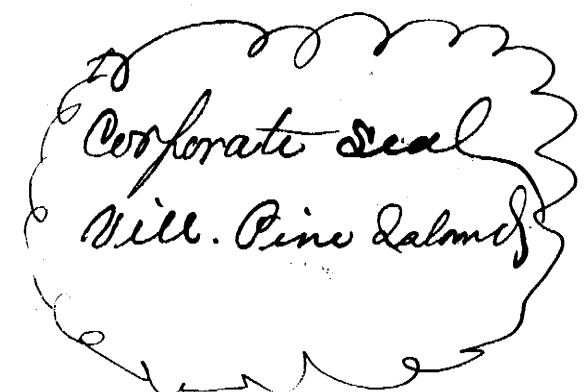 Corporate Seal
Vill. Pine Island